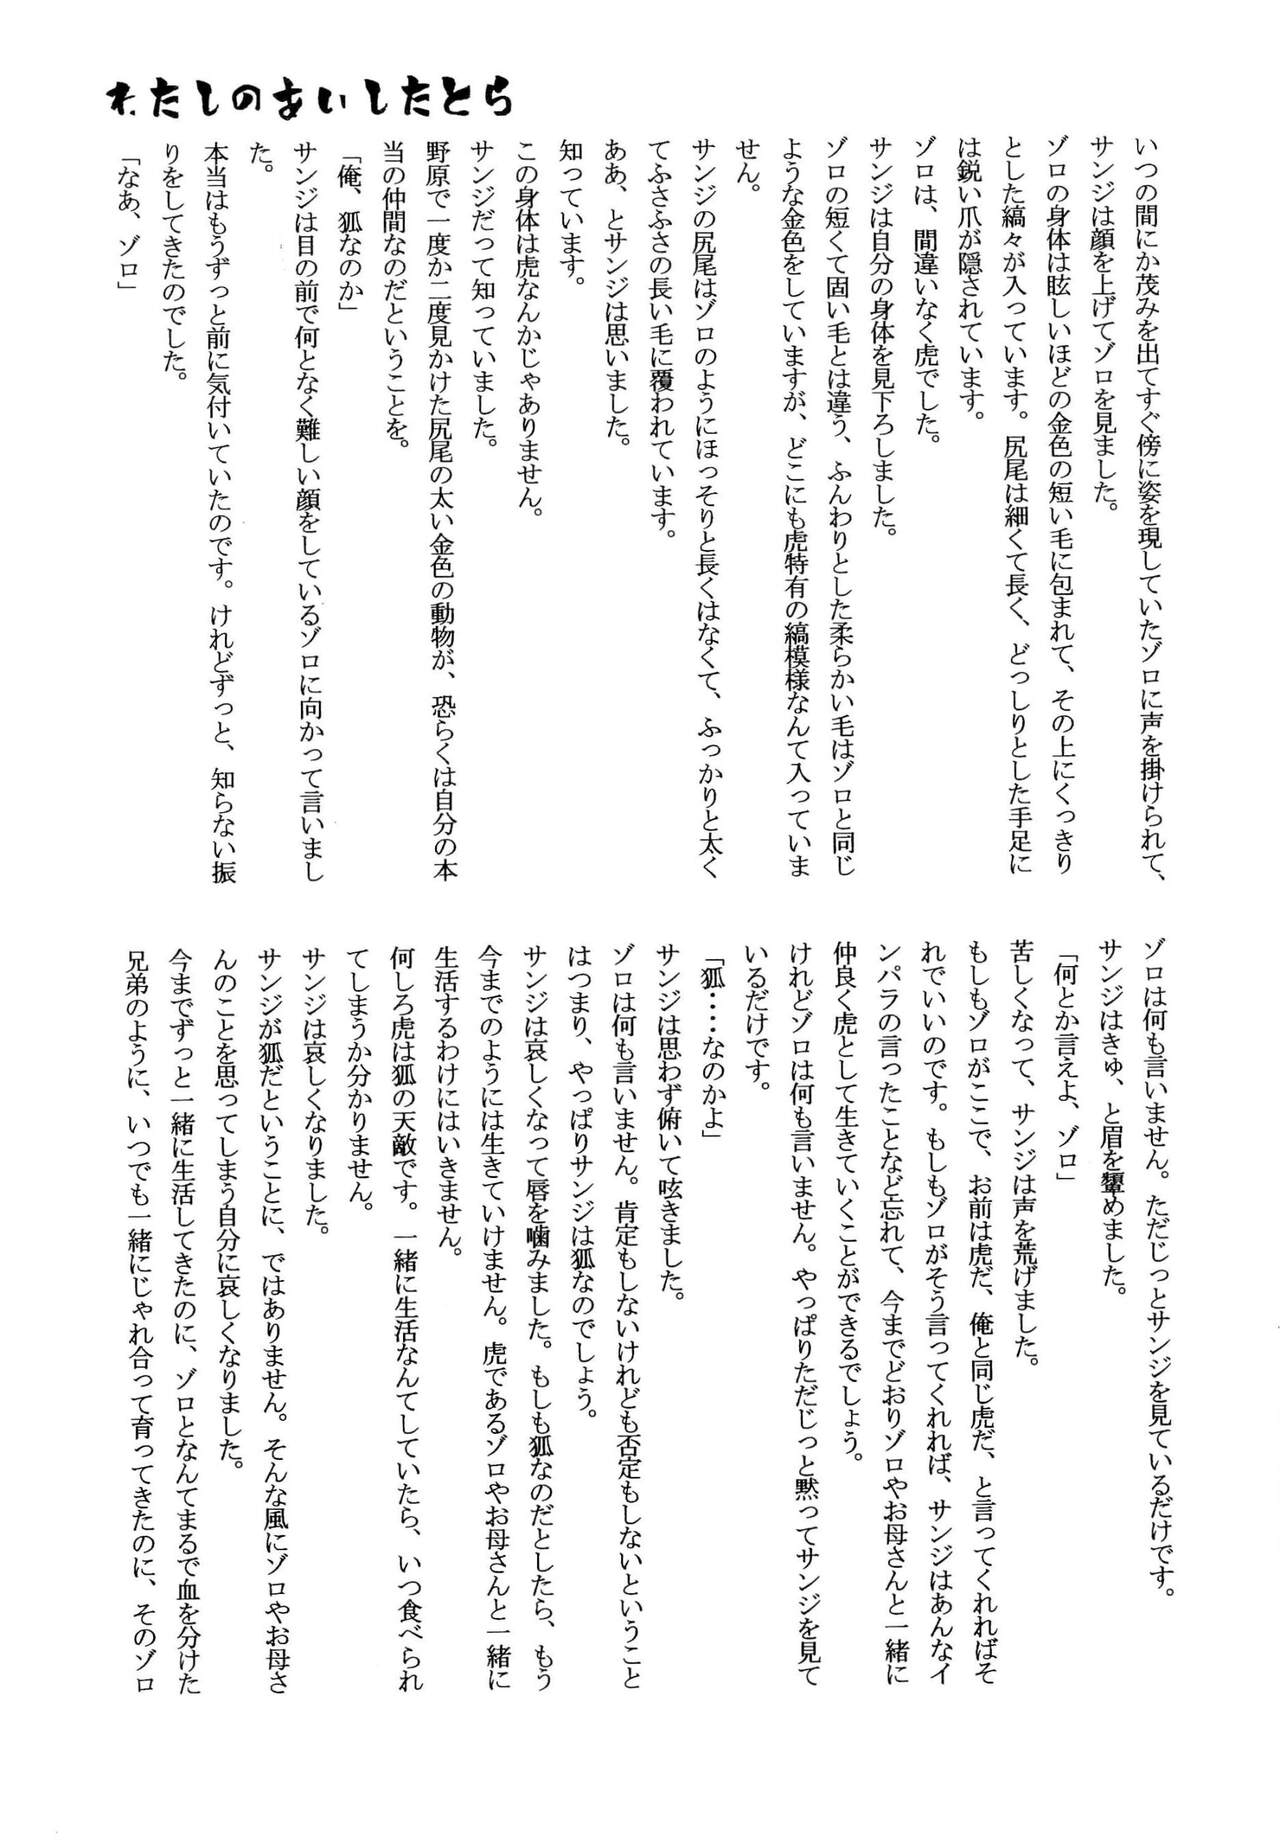 わたしのあいしたとら
いつの間にか茂みを出てすぐ傍に姿を現していたゾロに声を掛けられて、
サンジは顔を上げてゾロを見ました。
ゾロの身体は眩しいほどの金色の短い毛に包まれて、その上にくっきり
とした縞々が入っています。尻尾は細くて長く、どっしりとした手足に
は鋭い爪が隠されています。
ゾロは、間違いなく虎でした。
サンジは自分の身体を見下ろしました。
ゾロの短くて固い毛とは違う、ふんわりとした柔らかい毛はゾロと同じ
ような金色をしていますが、どこにも虎特有の縞模様なんて入っていま
せん。
サンジの尻尾はゾロのようにほっそりと長くはなくて、ふっかりと太く
てふさふさの長い毛に覆われています。
ああ、とサンジは思いました。
知っています。
この身体は虎なんかじゃありません。
サンジだって知っていました。
野原で一度か二度見かけた尻尾の太い金色の動物が、恐らくは自分の本
当の仲間なのだということを。
「俺、狐なのか」
サンジは目の前で何となく難しい顔をしているゾロに向かって言いまし
た。
本当はもうずっと前に気付いていたのです。けれどずっと、知らない振
りをしてきたのでした。
「なあ、ゾロ」
ゾロは何も言いません。ただじっとサンジを見ているだけです。
サンジはきゅ、と眉を顰めました。
「何とか言えよ、ゾロ」
苦しくなって、サンジは声を荒げました。
もしもゾロがここで、お前は虎だ、俺と同じ虎だ、と言ってくれればそ
れでいいのです。もしもゾロがそう言ってくれれば、サンジはあんなイ
ンパラの言ったことなど忘れて、今までどおりゾロやお母さんと一緒に
仲良く虎として生きていくことができるでしょう。
けれどゾロは何も言いません。やっぱりただじっと黙ってサンジを見て
いるだけです。
「狐‥‥なのかよ」
サンジは思わず俯いて呟きました。
ゾロは何も言いません。肯定もしないけれども否定もしないということ
はつまり、やっぱりサンジは狐なのでしょう。
サンジは哀しくなって唇を噛みました。もしも狐なのだとしたら、もう
今までのようには生きていけません。虎であるゾロやお母さんと一緒に
生活するわけにはいきません。
何しろ虎は狐の天敵です。一緒に生活なんてしていたら、いつ食べられ
てしまうか分かりません。
サンジは哀しくなりました。
サンジが狐だということに、ではありません。そんな風にゾロやお母さ
んのことを思ってしまう自分に哀しくなりました。
今までずっと一緒に生活してきたのに、ゾロとなんてまるで血を分けた
兄弟のように、いつでも一緒にじゃれ合って育ってきたのに、そのゾロ